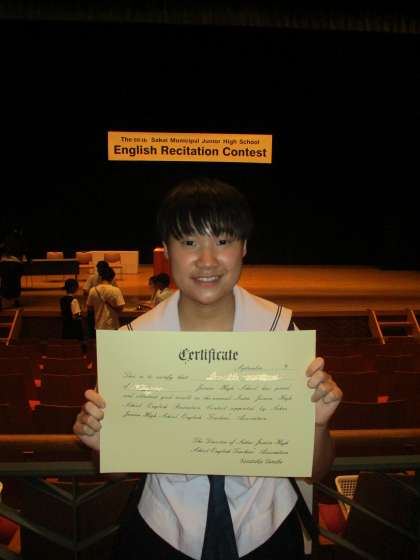 The 60th Sakai Municipal Junior High School
English Recitation Contest
Certificate
September 9
This is to certify that
of Junior High School has joined
and attained good results in the annual Sakai Junior High
School English Recitation Contest supported by Sakai
Junior High School English Teachers' Association.
The Director of Sakai Junior High
School English Teachers' Association